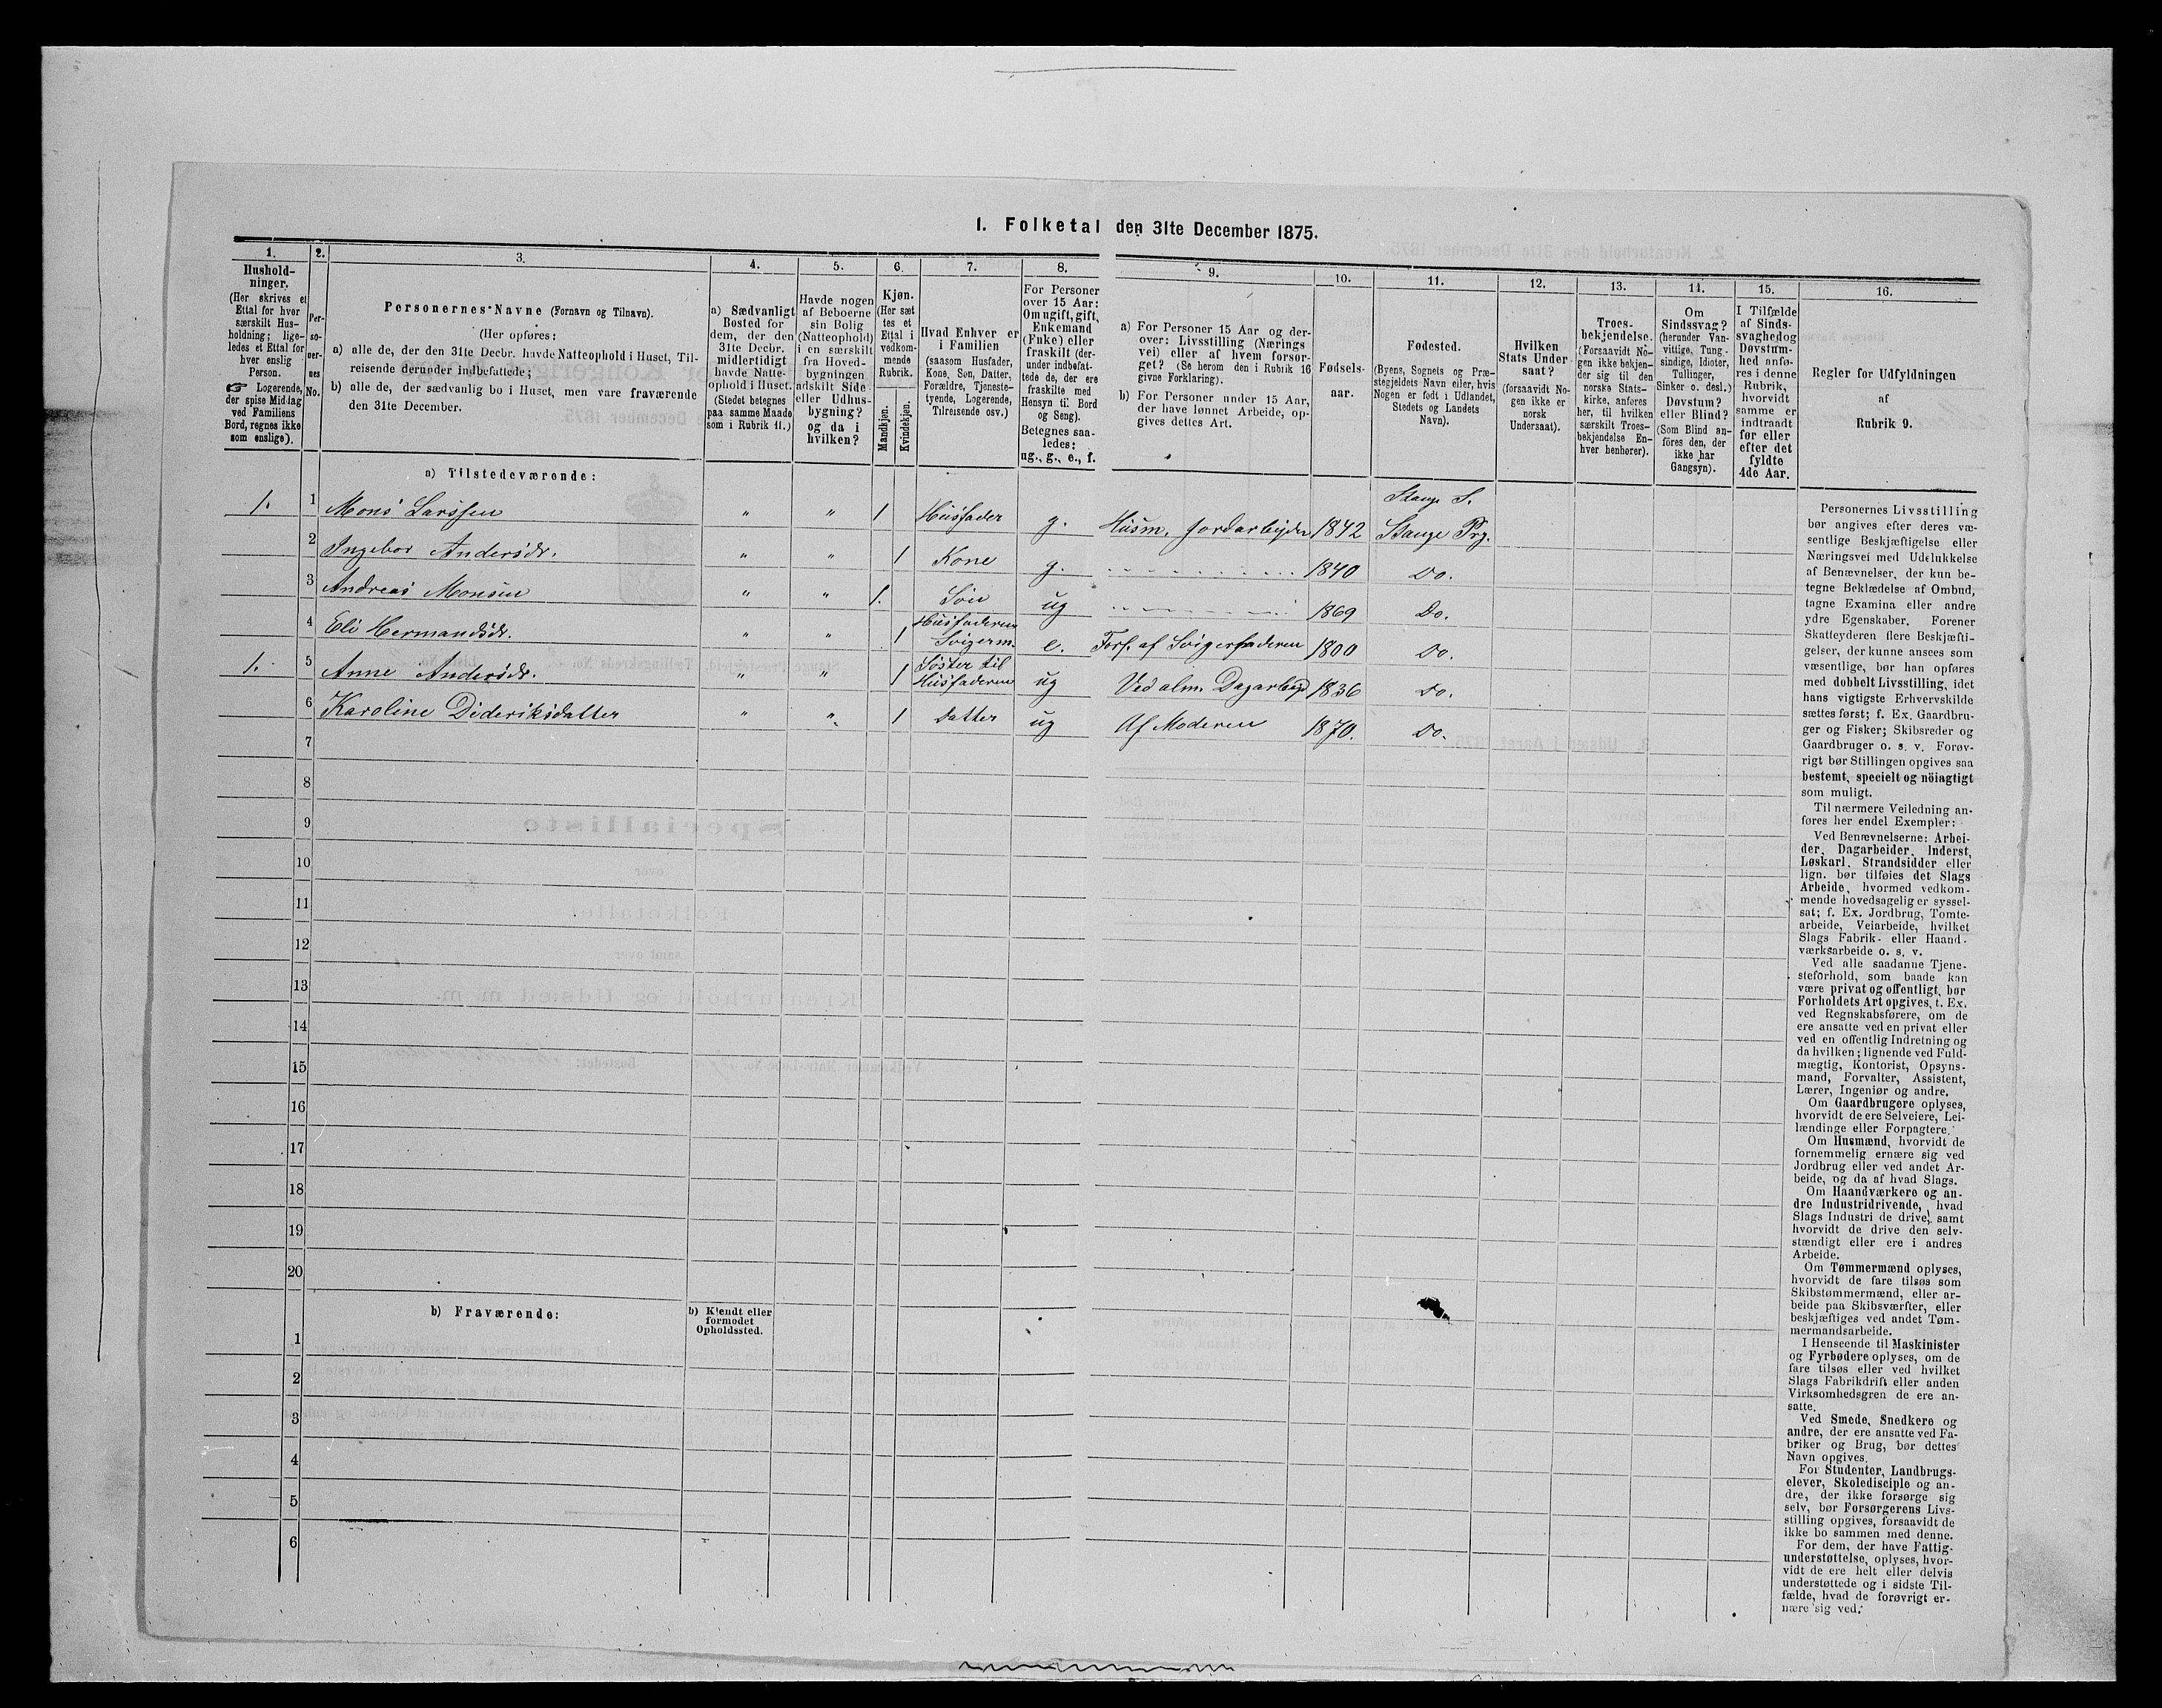 1. Folketal den 31te December 1875.
1.
Hushold-
ninger.
(Her skrives et
Ettal for hver
særskilt Hus-
holdning; lige-
ledes et Ettal for
hver enslig
Person.
☞ Logerende,
der spise Middag
ved Familiens
Bord, regnes ikke
som enslige).
2.
Per-
so-
ner-
nes
No.
3.
Personernes Navne (Fornavn og Tilnavn).
(Her opføres:
a) alle de, der den 31te Decbr. havde Natteophold i Huset, Til-
reisende derunder indbefattede;
b) alle de, der sædvanlig bo i Huset, men vare fraværende
den 31te December.
4.
a) Sædvanligt
Bosted for
dem, der den
31te Decbr.
midlertidigt
havde Natte-
ophold i Huset.
(Stedet betegnes
paa samme Maade
som i Rubrik 11.)
5.
Havde nogen
af Beboerne
sin Bolig
(Natteophold)
i en særskilt
fra Hoved-
bygningen
adskilt Side-
eller Udhus-
bygning?
og da i
hvilken?
6.
Kjøn.
(Her sæt-
tes et
Ettal i
vedkom-
mende
Rubrik.
Mandkjøn.
Kvindekjøn.
7.
Hvad Enhver er
i Familien
(saasom Husfader,
Kone, Søn, Datter,
Forældre, Tjeneste-
tyende, Logerende,
Tilreisende osv.)
8.
For Personer
over 15 Aar:
Om ugift, gift,
Enkemand
(Enke) eller
fraskilt (der-
under indbefat-
tede de, der ere
fraskilte med
Hensyn til Bord
og Seng).
Betegnes saa-
ledes:
ug., g., e., f.
9.
a) For Personer 15 Aar og der-
over: Livsstilling (Nærings-
vei) eller af hvem forsør-
get? (Se herom den i Rubrik 16
givne Forklaring).
b) For Personer under 15 Aar,
der have lønnet Arbeide, op-
gives dettes Art.
10.
Fødsels-
aar.
11.
Fødested.
(Byens, Sognets og Præ-
stegjeldets Navn eller, hvis
Nogen er født i Udlandet,
Stedets og Landets
Navn).
12.
Hvilken
Stats Under-
saat?
(forsaavidt No-
gen ikke er
norsk
Undersaat).
13.
Troes-
bekjendelse.
(Forsaavidt No-
gen ikke bekjen-
der sig til den
norske Stats-
kirke, anføres
her, til hvilken
særskilt Troes-
bekjendelse En-
hver henhører).
14.
Om
Sindssvag?
(herunder Van-
vittige, Tung-
sindige, Idioter,
Tullinger,
Sinker o. desl.)
Døvstum?
eller Blind?
(Som Blind an-
føres den, der
ikke har
Gangsyn).
15.
I Tilfælde
af Sinds-
svaghed og
Døvstum-
hed anfø-
res i denne
Rubrik,
hvorvidt
samme er
indtraadt
før eller
efter det
fyldte
4de Aar.
16.
Regler for Udfyldningen
af
Rubrik 9.
a) Tilstedeværende:
Stange S.
1. 1 Mons Larssen " " 1 Husfader g. Husm. Jordarbeider 1842 Stange Prg.
2 Ingebor Andersdr. " " 1 Kone g. 1840 Do.
3 Andreas Monsen " " 1. Søn ug 1869 Do.
4 Eli Hermandsdr. " " 1 Husfaderen Svigerm. e. Fors. af Svigerfaderen 1800 Do.
1. 5 Anne Andersdr. " " 1 Søster til Husfaderen ug Ved alm. Dagarbeid 1836 Do.
6 Karoline Dideriksdatter " " 1 Datter ug Af Moderen 1870. Do.
7
8
9
10
11
12
13
14
15
16
17
18
19
20
b) Fraværende:
b) Kjendt eller
formodet
Opholdssted.
1
2
3
4
5
6
Personernes Livsstilling
bør angives efter deres væ-
sentlige Beskjæftigelse eller
Næringsvei med Udelukkelse
af Benævnelser, der kun be-
tegne Beklædelse af Ombud,
tagne Examina eller andre
ydre Egenskaber. Forener
Skatteyderen flere Beskjæfti-
gelser, der kunne ansees som
væsentlige, bør han opføres
med dobbelt Livsstilling, idet
hans vigtigste Erhvervskilde
sættes først; f. Ex. Gaardbru-
ger og Fisker; Skibsreder og
Gaardbruger o. s. v. Forøv-
rigt bør Stillingen opgives saa
bestemt, specielt og nöiagtigt
som muligt.
Til nærmere Veiledning an-
føres her endel Exempler:
Ved Benævnelserne: Arbei-
der, Dagarbeider, Inderst,
Løskarl, Strandsidder eller
lign. bør tilføies det Slags
Arbeide, hvormed vedkom-
mende hovedsagelig er syssel-
sat; f. Ex. Jordbrug, Tomte-
arbeide, Veiarbeide, hvilket
Slags Fabrik- eller Haand-
værksarbeide o. s. v.
Ved alle saadanne Tjene-
steforhold, som baade kan
være privat og offentligt, bør
Forholdets Art opgives, t. Ex.
ved Regnskabsførere, om de
ere ansatte ved en privat eller
ved en offentlig Indretning og
da hvilken; lignende ved Fuld-
mægtig, Kontorist, Opsyns-
mand, Forvalter, Assistent,
Lærer, Ingeniør og andre.
Om Gaardbrugere oplyses,
hvorvidt de ere Selveiere, Lei-
lændinge eller Forpagtere.
Om Husmænd, hvorvidt de
fornemmelig ernære sig ved
Jordbrug eller ved andet Ar-
beide, og da af hvad Slags.
Om Haandværkere og an-
dre Industridrivende, hvad
Slags Industri de drive, samt
hvorvidt de drive den selv-
stændigt eller ere i andres
Arbeide.
Om Tømmermænd oplyses,
hvorvidt de fare tilsøs som
Skibstømmermænd, eller ar-
beide paa Skibsværfter, eller
beskjæftiges ved andet Tøm-
mermandsarbeide.
I Henseende til Maskinister
og Fyrbødere oplyses, om de
fare tilsøs eller ved hvilket
Slags Fabrikdrift eller anden
Virksomhedsgren de ere an-
satte.
Ved Smede, Snedkere og
andre, der ere ansatte ved Fa-
briker og Brug, bør dettes
Navn opgives.
For Studenter, Landbrugs-
elever, Skoledisciple og an-
dre, der ikke forsørge sig
selv, bør Forsørgerens Livs-
stilling opgives, forsaavidt de
ikke bo sammen med denne.
For dem, der have Fattig-
understøttelse, oplyses, hvor-
vidt de ere helt eller delvis
understøttede og i sidste Til-
fælde, hvad de forøvrigt er-
nære sig ved.